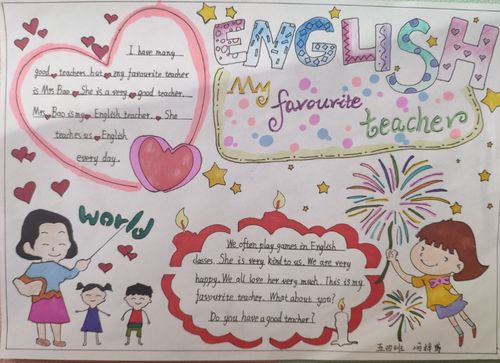 ENGLISH
My
favourite
teacher
I have many
good teachers but my favourite teacher
is Mrs Bao. She is a very good teacher.
Mrs Bao is my English teacher. She
teaches us English
every day.
World
We often play games in English
classes. She is very kind to us. We are very
happy. We all love her very much. This is my
favourite teacher. What about you?
Do you have a good teacher?
五四班